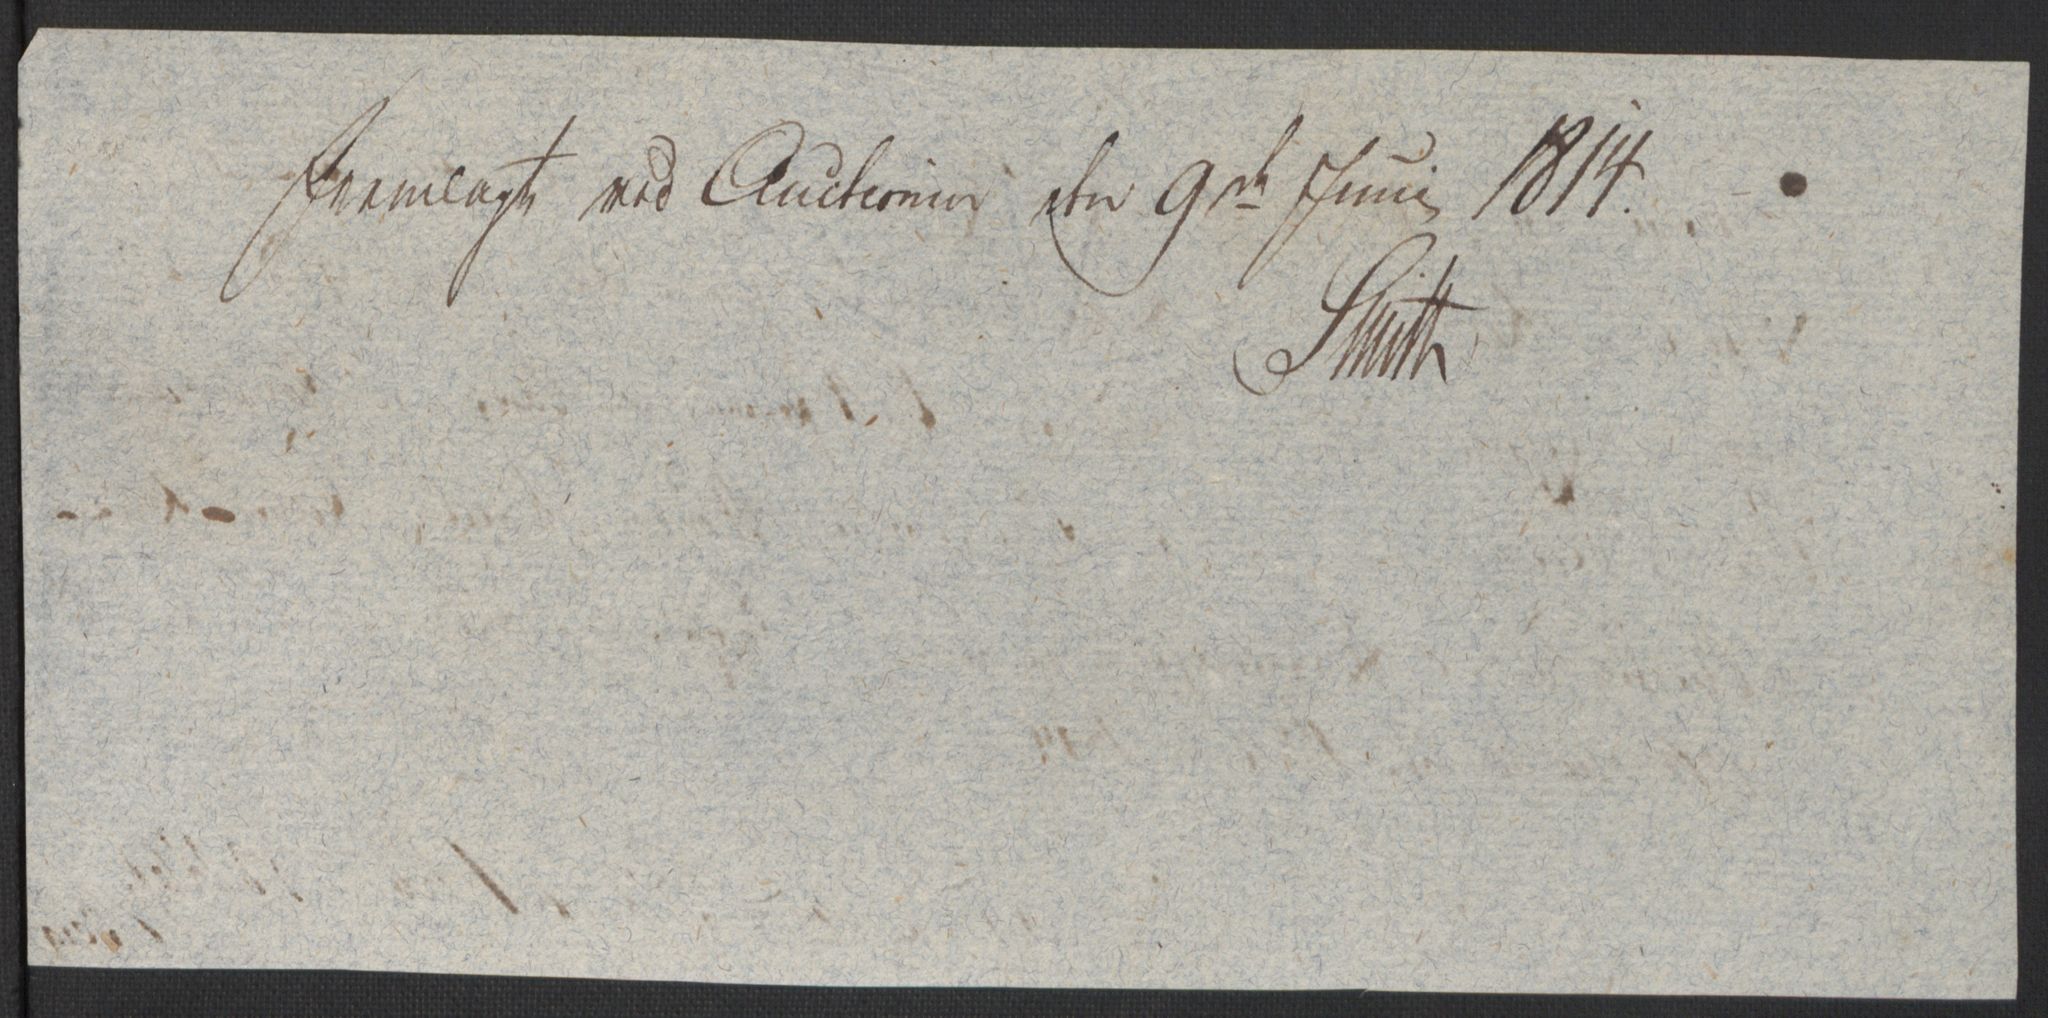 Fremlagt ved Auctionen den 9de Junij 1814.
Smith